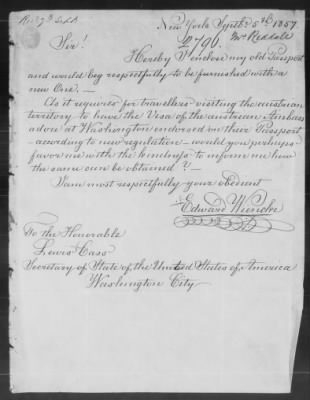 Rec. 7th Sept.
New York Septbr. 5th 1857.
2796. Mr Reddall
Sir!
Hereby I enclose my old Passport
and would beg respectfully to be furnished with a
new One. —
As it requires for travellers visiting the austrian
territory to have the Visa of the austrian Ambass
adore at Washington endorsed on their Passport —
according to new regulation — would you perhaps
favor me with the kindness to inform me how
the same can be obtained? —
I am most respectfully your obedient
Edward
To the Honorable
Lewis Cass
Secretary of State of the United States of America
Washington City